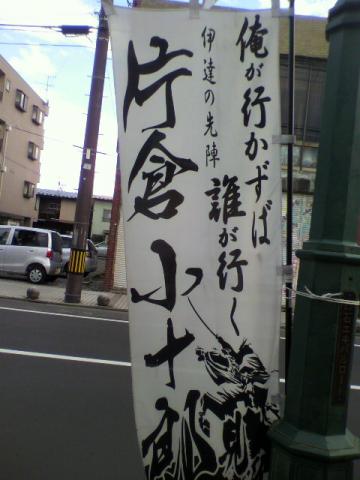 俺が行かずば
誰が行く
伊達の先陣
片倉小十郎
見